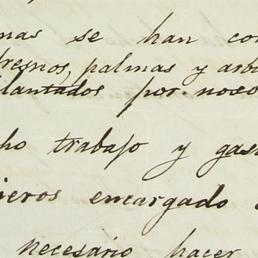 mas se han con
fresnos, palmas y arbu
plantados por noso
ho trabajo y gas
ieros encargado
necesario hacer